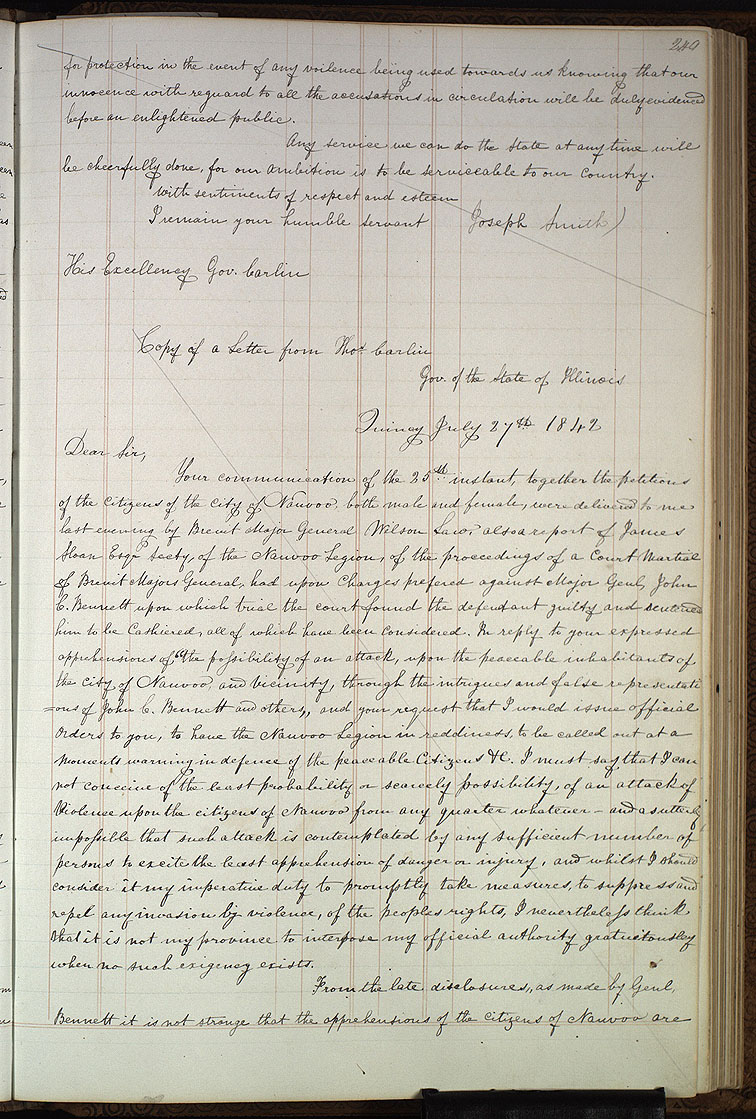 249
for protection in the event of any voilence being used towards us knowing that our
innocence with reguard to all the accusations in circulation will be duly evidenced
before an enlightened public.
Any service we can do the State at any time will
be cheerfully done, for our ambition is to be serviceable to our Country.
With sentiments of respect and esteem
I remain your humble servant Joseph Smith)
His Excellency Gov. Carlin
Copy of a Letter from Thos. Carlin
Gov. of the State of Illinois
Quincy July 27th 1842
Dear Sir,
Your communication of the 25th instant, together the petitions
of the citizens of the city of Nauvoo, both male and female, were delivered to me
last evening by Brevit Major General Wilson Law, also a report of James
Sloan Esqr Secty, of the Nauvoo Legion, of the proceedings of a Court Martial
of Brevit Majors General, had upon Charges prefered against Major Genl, John
C. Bennett upon which trial the court found the defendant guilty and sentenced
him to be Cashiered, all of which have been considered. In reply to your expressed
apprehensions of "the possibility of an attack, upon the peaceable inhabitants of
the city of Nauvoo, and vicinity, through the intrigues and false representati
=ons of John C. Bennett and others,, and your request that I would issue official
orders to you, to have the Nauvoo Legion in reddiness, to be called out at a
moments warning in defence of the peaceable Citizens &C. I must say that I can
not conceive of the least probability or scarcely possibility, of an attack of
Violence upon the citizens of Nauvoo from any quarter whatever – and as utterly
impossible that such attack is contemplated by any sufficient number of
persons to excite the least apprehension of danger or injury, and whilst I should
consider it my imperative duty to promptly take measures, to suppress and
repel any invasion by violence, of the peoples rights, I nevertheless think
that it is not my province to interpose my official authority gratuitously
when no such exigency exists.
From the late disclosures,, as made by Genl,
Bennett it is not strange that the apprehensions of the citizens of Nauvoo are